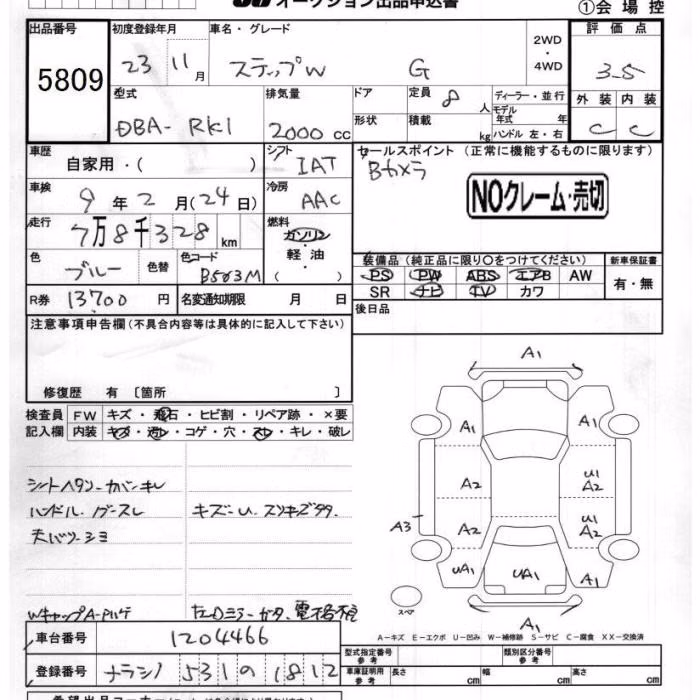 オークション出品申込書
①会場控
出品番号
5809
初度登録年月
23 11月
車名・グレード
ステップW G
2WD
・
4WD
評価点
3.5
型式
DBA-RK1
排気量
2000cc
ドア
形状
定員
8人
積載
kg
ディーラー・並行
モデル年式 年
ハンドル 左・右
外装 内装
C C
車歴
自家用・( )
シフト
IAT
セールスポイント (正常に機能するものに限ります)
Bカメラ
NOクレーム・売切
車検
9年2月(24日)
冷房
AAC
走行
7万8千328km
燃料
ガソリン
・
軽油
( )
色
ブルー
色替
色コード
B583M
装備品 (純正品に限り○をつけてください)
新車保証書
PS PW ABS エアB AW
SR ナビ TV カワ
有・無
R券 13700円
名変通知期限 月 日
後日品
注意事項申告欄(不具合内容等は具体的に記入して下さい)
修復歴 有 〔箇所 〕
検査員
記入欄
FW キズ・飛石・ヒビ割・リペア跡・×要
内装 キズ・汚レ・コゲ・穴・スレ・キレ・破レ
シートヘタリ-カバーキレ
ハンドル
キズ-U.
天バリ-シミ
WキャップA-
左右Dミラー
電格不
A1
A1 A1
A2 U1 A2
A3 A2 U1 A2
UA1 UA1 A1
A1
スペア
A-キズ E-エクボ U-凹み W-補修跡 S-サビ C-腐食 XX-交換済
車台番号
1204466
登録番号
ナラシノ 531 の 1812
型式指定番号
参考
類別区分番号
参考
車庫証明用
参考
長さ cm 幅 cm 高さ cm